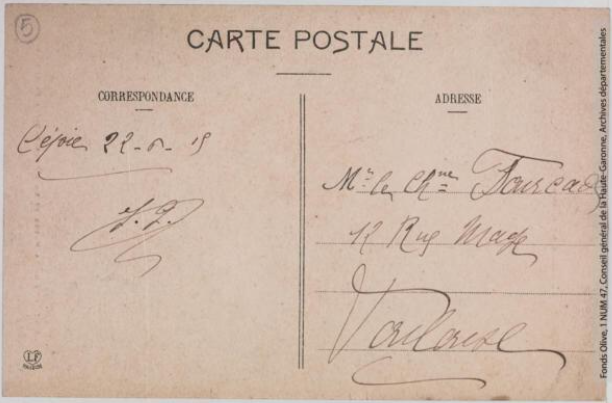 5
CARTE POSTALE
CORRESPONDANCE
22-6-15
ADRESSE
Mr le Chne
12 Rue Mage
Toulouse
Fonds Olive, 1 NUM 47, Conseil général de la Haute-Garonne, Archives départementales